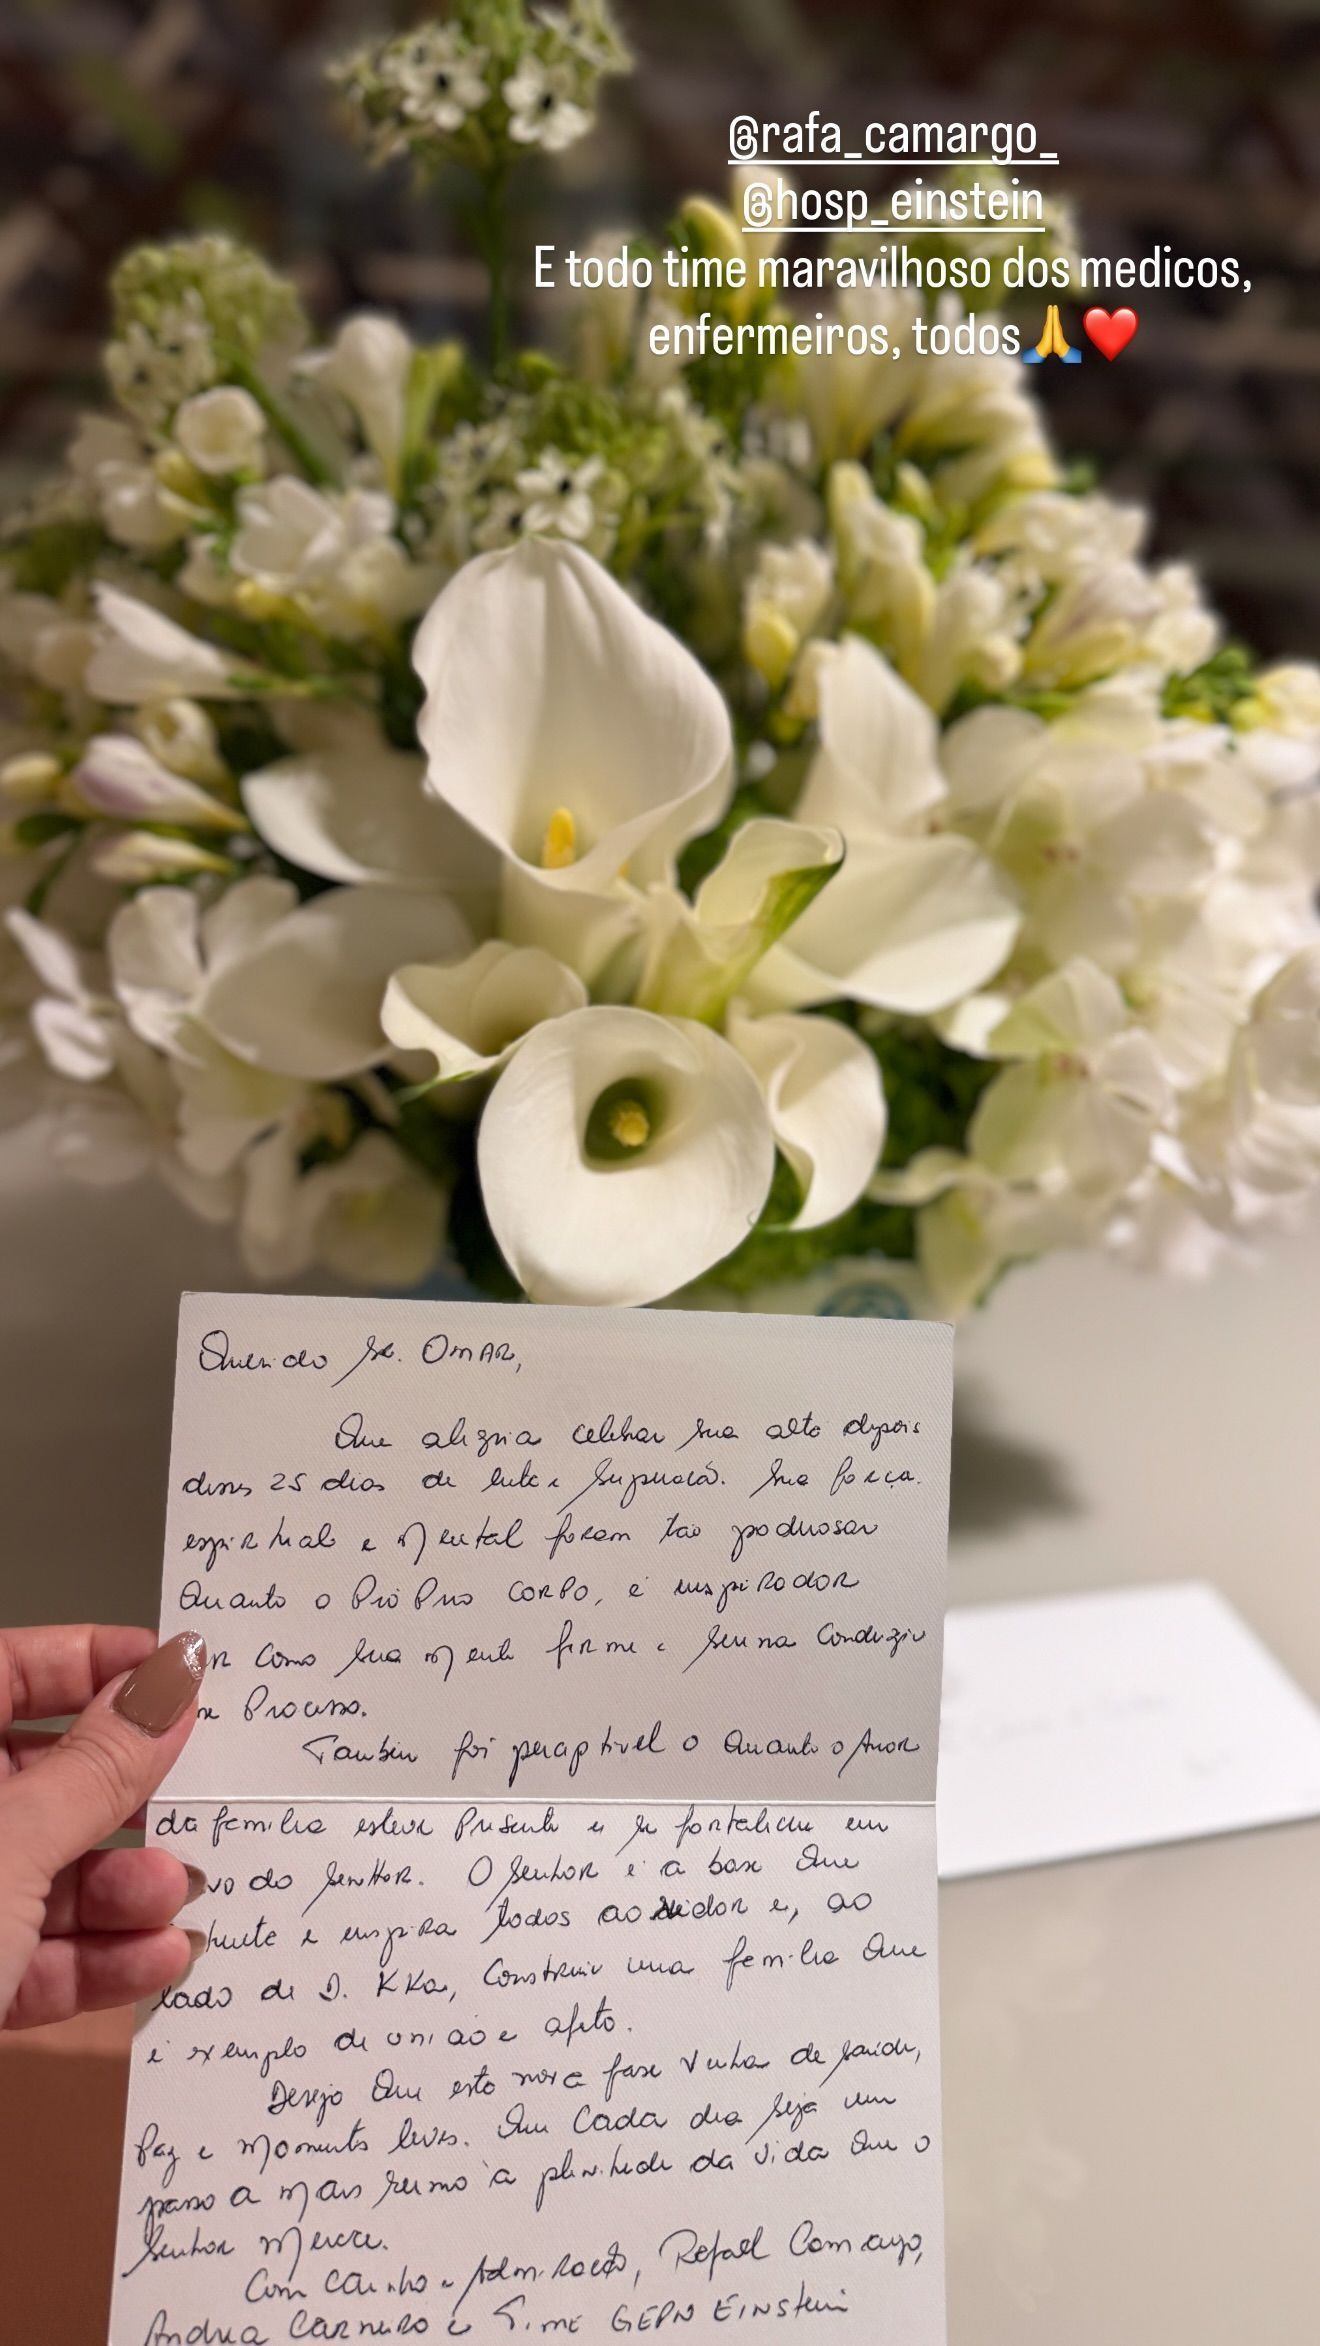 @rafa_camargo_
@hosp_einstein
E todo time maravilhoso dos medicos,
enfermeiros, todos🙏❤️
Querido Sr. OMAR,
Que alegria celebrar sua alta depois
desses 25 dias de luta e superação. Sua força
espiritual e mental foram tão poderosas
Quanto o PróPrio CORPO, é inspirador
como sua mente firme e serena conduziu
Processo.
Também foi perceptível o Quanto o Amor
da família esteve Presente e se fortaleceu em
do Senhor. O Senhor é a base Que
e inspira todos ao redor e, ao
lado de D. KKa, construiu uma família Que
é exemplo de união e afeto.
Desejo Que esta nova fase venha de saúde,
Paz e momentos leves. Que cada dia seja um
passo a mais rumo à plenitude da vida Que o
Senhor merece.
Com carinho e Admiração, Rafael Camargo,
Andrea CARNEIRO e Time GEPN EINStein